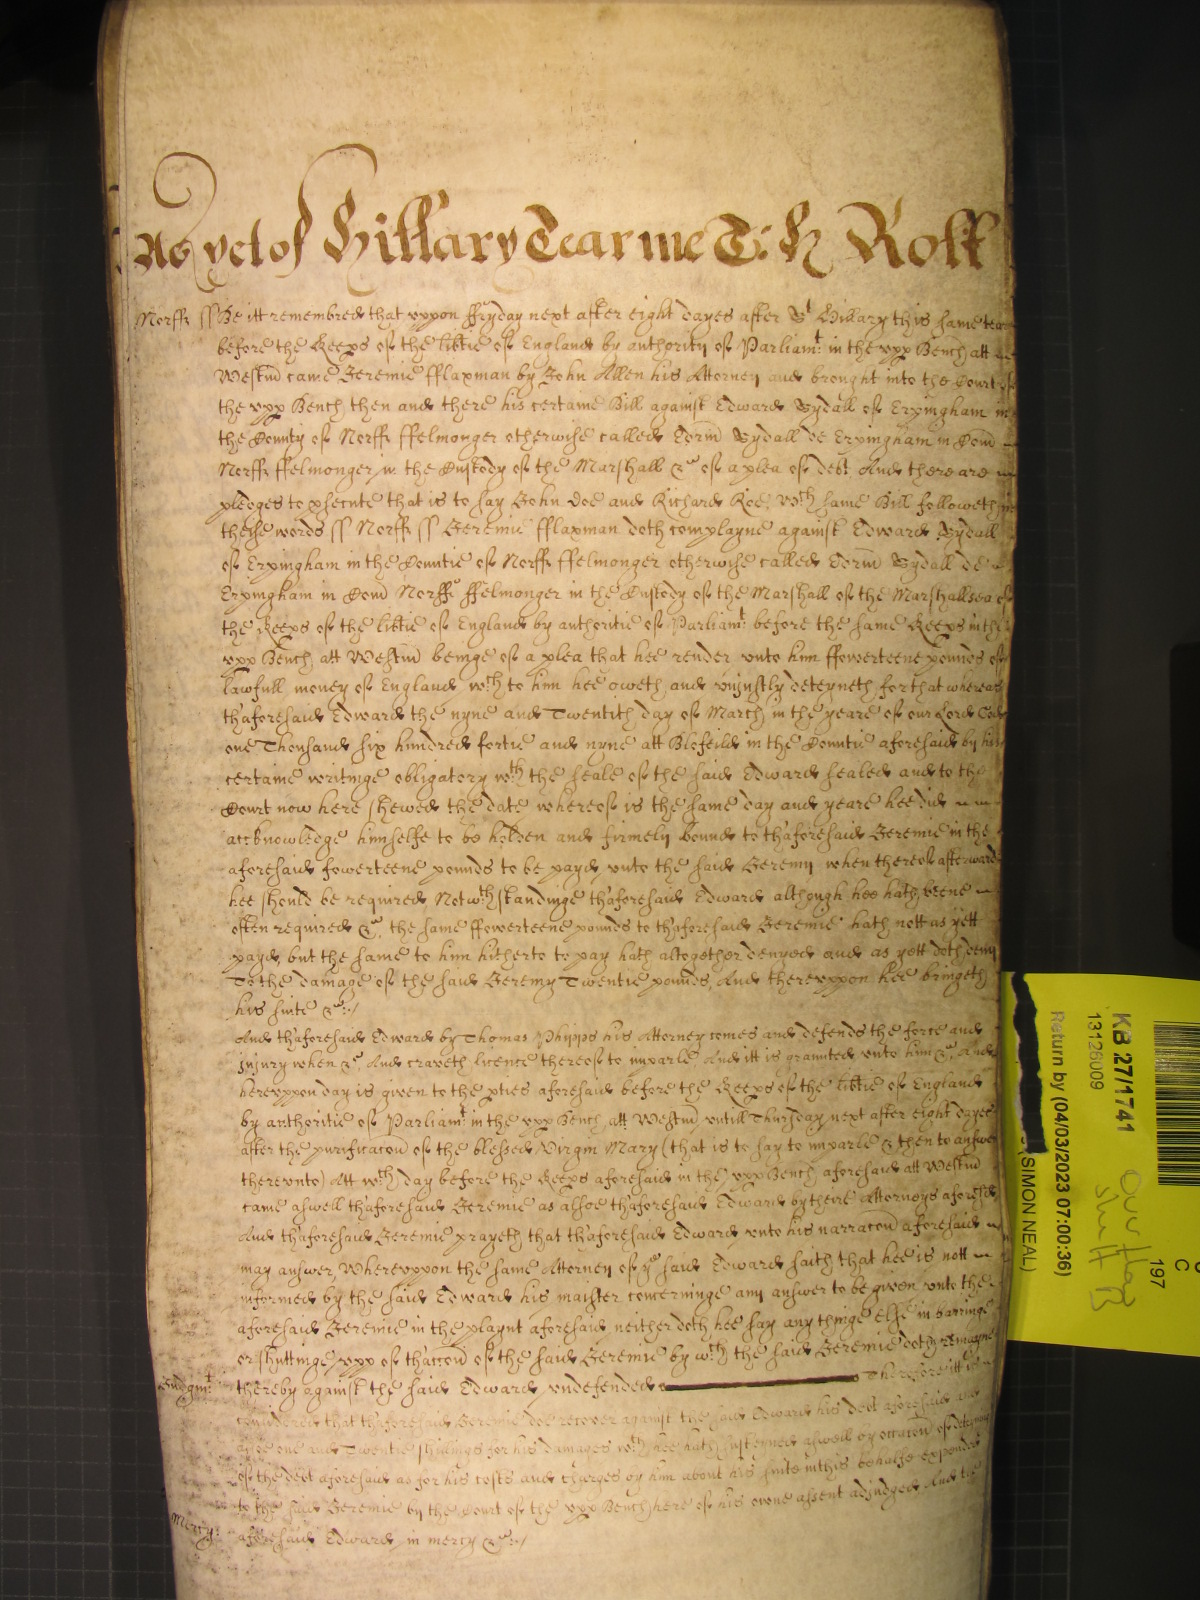 As yet of Hillary Tearme T: H Roll
Norff ss Be itt remembred that uppon ffryday next after eight dayes after St Hillary this same tear
before the Keeps of the libtie of England by authority of Parliamt in the upp Bench att
Westm came Jeremie fflaxman by John Allen his Attorney and brought into the Court of
the upp Bench then and there his certame Bill against Edward Sydall of Erpingham in
the County of Norff ffelmonger otherwise called Edrm Sydall de Erpingham in Com
Norff ffelmonger in the Custody of the Marshall &c of a plea of debt And there are
pledges to psecute that is to say John Doe and Richard Roe wch same Bill followeth in
theise words ss Norff ss Jeremie fflaxman doth complayne against Edward Sydall
of Erpingham in the Countie of Norff ffelmonger otherwise called Edrm Sydall de
Erpingham in Com Norff ffelmonger in the Custody of the Marshall of the Marshallsea of
the Keeps of the libtie of England by authoritie of Parliamt before the same Keeps in the
upp Bench att Westm beinge of a plea that hee render unto him ffowerteene pounds of
lawfull money of England wch to him hee oweth and uniustly deteyneth for that whereas
thaforesaid Edward the nyne and Twentith day of March in the yeare of our Lord God
one Thousand six hundred fortie and nyne att Blofeild in the Countie aforesaid by his
certame writinge obligatory wth the seale of the said Edward sealed and to the
Court now here shewed the date whereof is the same day and yeare hee did
acknowledge himselfe to be holden and firmely bound to thaforesaid Jeremie in the
aforesaid fowerteene pounds to be payd unto the said Jeremy when thereof afterward
hee should be required Notwthstandinge thaforesaid Edward although hee hath beene
often required &c the same ffowerteene pounds to thaforesaid Jeremie hath nott as yett
payd but the same to him hitherto to pay hath altogether denyed and as yett doth deny
To the damage of the said Jeremy Twentie pounds And thereuppon hee bringeth
his suite &c
And thaforesaid Edward by Thomas Phipps his Attorney comes and defends the force and
iniury when &c And craveth licence thereof to imparle And itt is graunted unto him &c And
hereuppon day is given to the pties aforesaid before the Keeps of the libtie of England
by authoritie of Parliamt in the upp Bench att Westm untill Thursday next after eight dayes
after the purificacon of the blessed Virgin Mary (that is to say to imparle & then to answer
thereunto) Att wch day before the Keeps aforesaid in the upp Bench aforesaid att Westm
came aswell thaforesaid Jeremie as alsoe thaforesaid Edward by theire Attorneys aforesaid
And thaforesaid Jeremie prayeth that thaforesaid Edward unto his narracon aforesaid
may answer, Whereuppon the same Attorney of ye said Edward saith that hee is nott
informed by the said Edward his maister concerninge any answer to be given unto the
aforesaid Jeremie in the playnt aforesaid neither doth hee say any thinge else in barringe
or shuttinge upp of thaccon of the said Jeremie by wch the said Jeremie doth remayne
Iudgmt thereby against the said Edward undefended Therefore itt is
considered that thaforesaid Jeremie doe recover against the said Edward his debt aforesaid and
alsoe one and Twentie shillings for his damages wch hee hath susteyned aswell by occacon of deteyninge
of the debt aforesaid as for his costs and charges by him about his suite in this behalfe expended
to the said Jeremie by the Court of the upp Bench here of his owne assent adiudged And the
Mercy: aforesaid Edward in mercy &c
KB 27/1741
13126009
Return by (04/03/2023 07:00:36)
(SIMON NEAL)
197
C